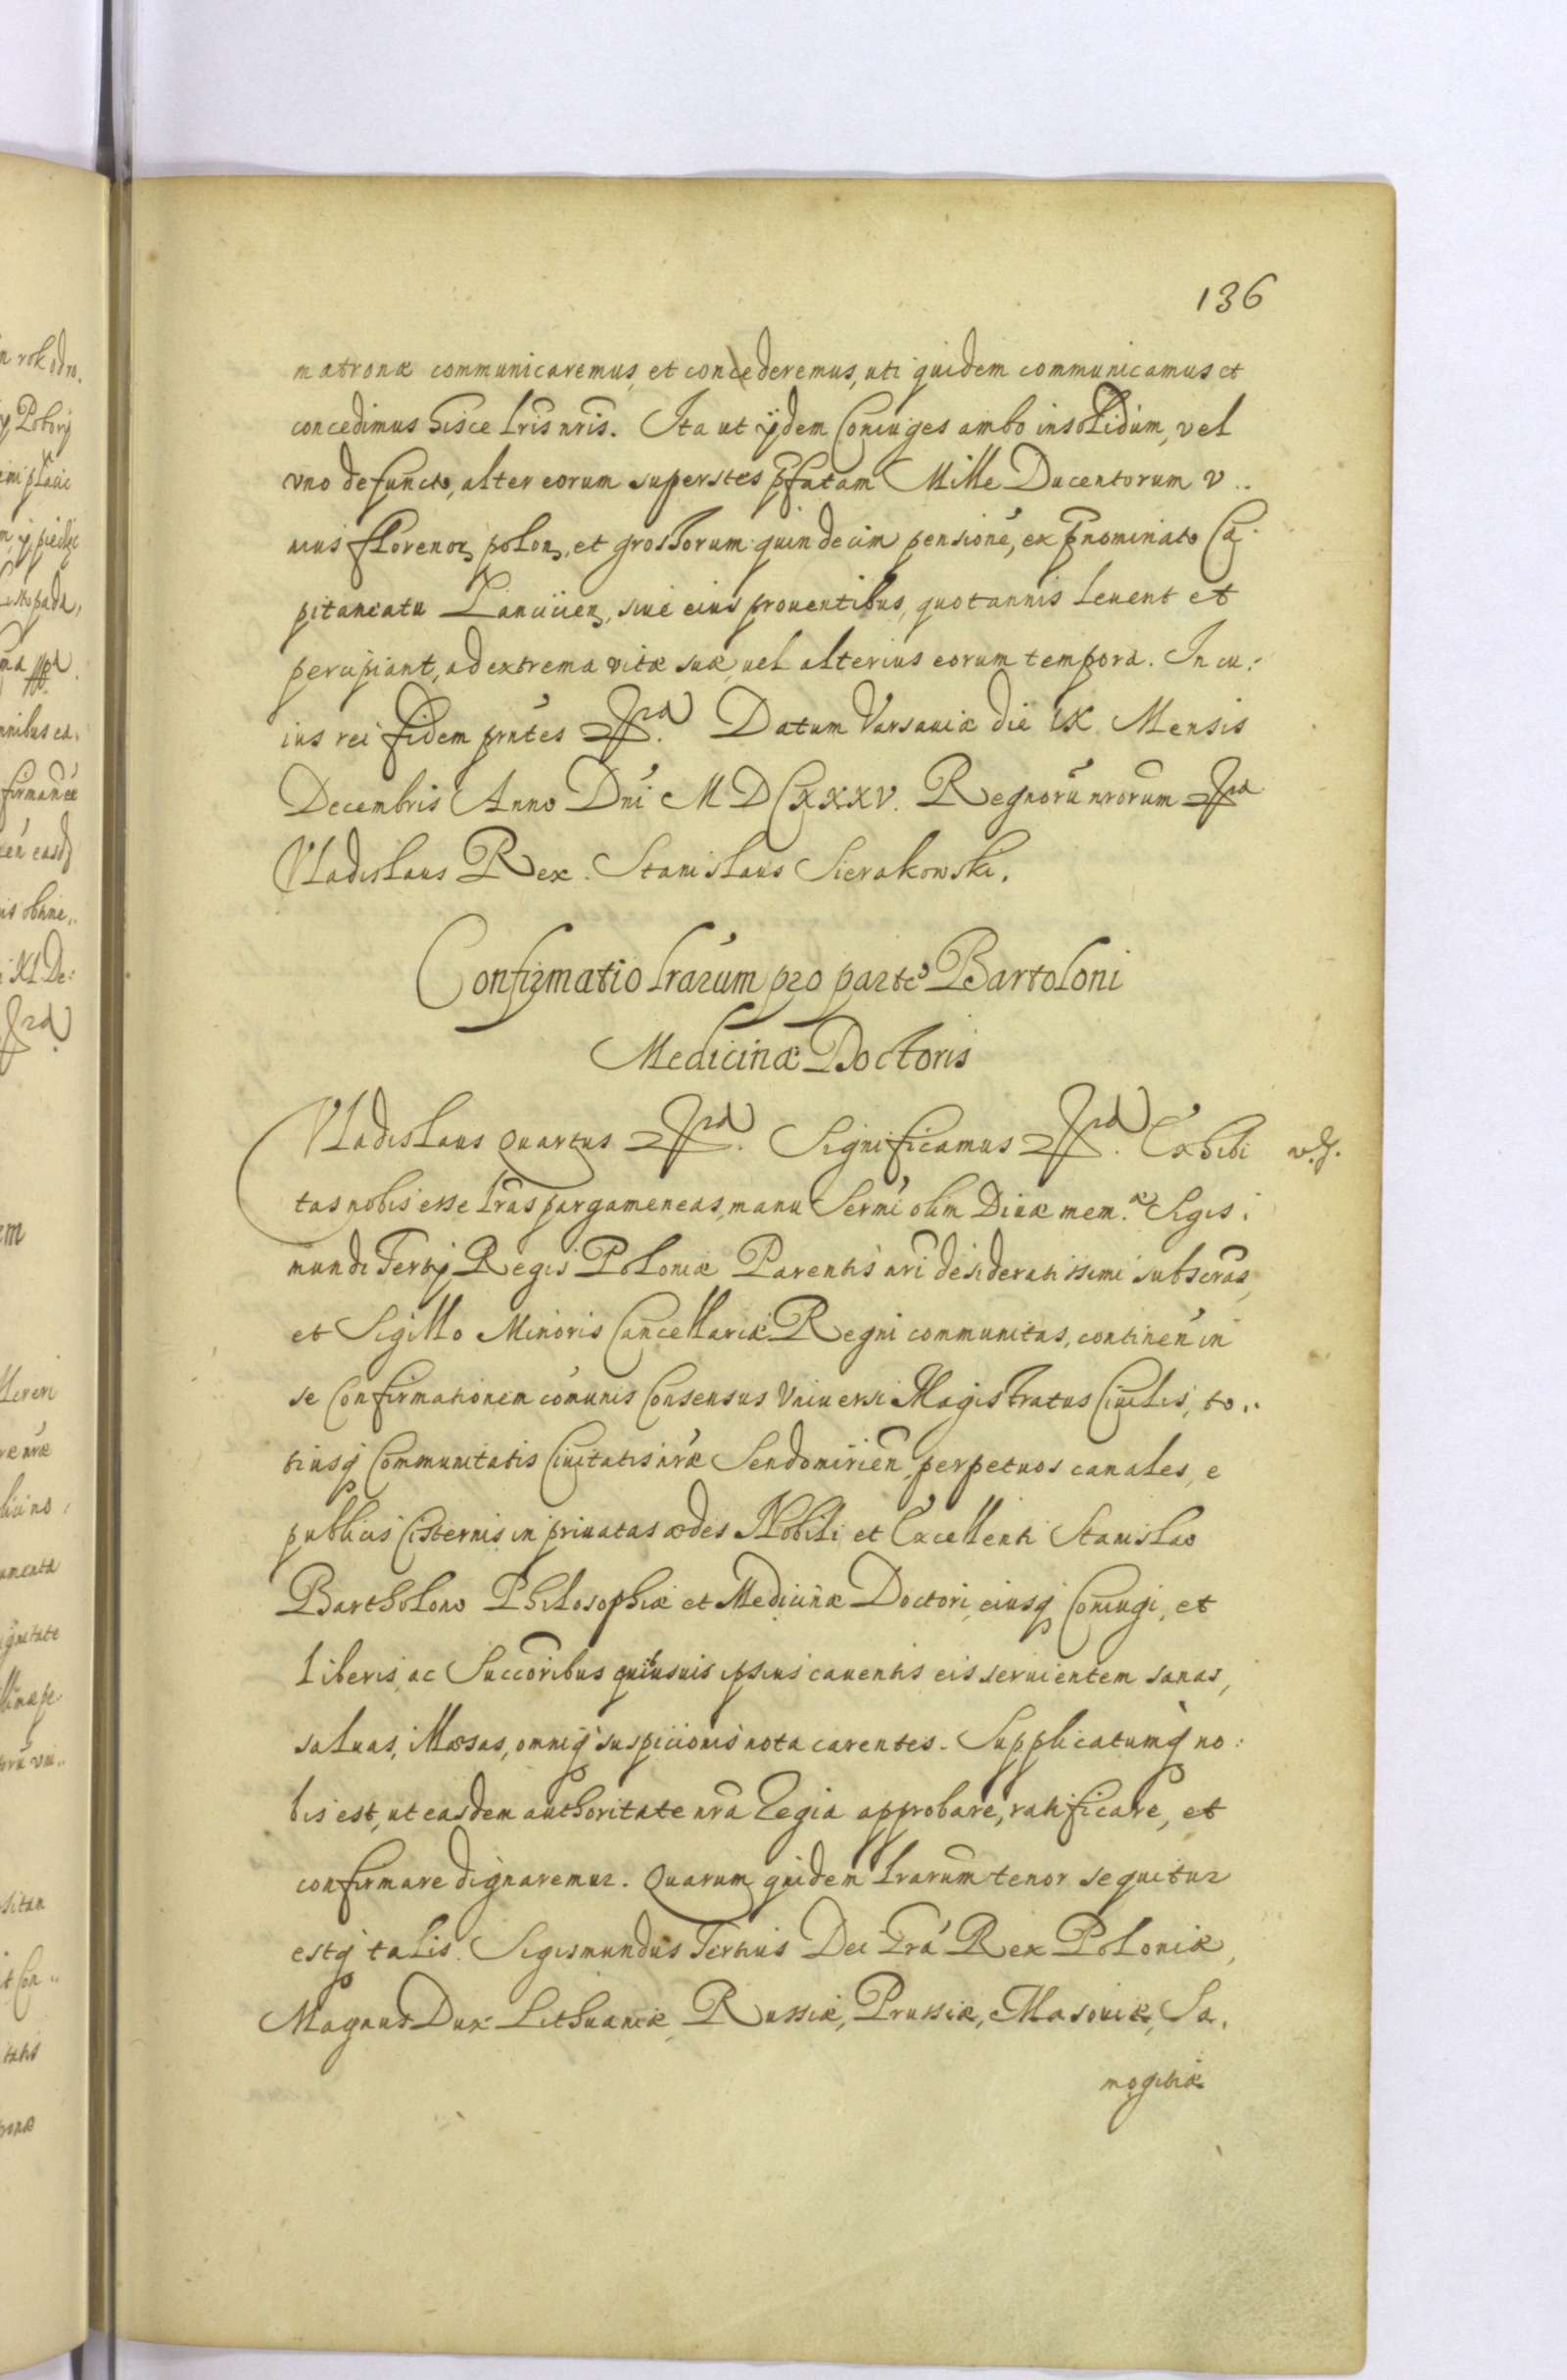 136
matronæ communicaremus, et concederemus, uti quidem communicamus et
concedimus hisce lris nris. Ita ut ijdem Coniuges ambo insolidum, vel
vno defuncto, alter eorum superstes pfatam Mille Ducentorum v..
nius florenor polon, et grossorum quindecim pensione, ex pnominato Ca
pitaneatu siue eius prouentibus, quotannis leuent et
percipiant, ad extrema vitæ suæ, uel alterius eorum tempora. In cu:
ius rei fidem pntes Datum Varsauiæ die IX Mensis
Decembris Anno Dni MDCXXXV. Regnorū nrorum
Vladislaus Rex. Stanislaus Sierakowski.
Confirmatio lrarum pro parte Bartoloni
Medicinæ Doctoris
Vladislaus Quartus Significamus Exhibi
tas nobis esse lras pargameneas, manu Sermi olim Diuæ mem. Sigis:
mundi Tertij Regis Poloniæ Parentis nri desideratissimi subscras,
et Sigillo Minoris Cancellariæ Regni communitas, continen in
se Confirmationem cōmunis Consensus Vniuersi Magistratus Ciuilis, to..
tiusq Communitatis Ciuitatis nræ Sendomirien, perpetuos canales, e
publicis Cisternis in priuatas ædes Nobili et Excellenti Stanislao
Bartholono Philosophiæ et Medicinæ Doctori, eiusq Coniugi, et
liberis, ac Succoribus quibusuis ipsius cauentis eis seruientem sanas,
saluas, illæsas, omniq suspicionis nota carentes. Supplicatumq no:
bis est, ut easdem authoritate nra Regia approbare, ratificare, et
confirmare dignaremur. Quarum quidem lrarum tenor sequitur
estq talis. Sigismundus Tertius Dei Gra Rex Poloniæ,
Magnus Dux Lithuaniæ, Russiæ, Prussiæ, Masouiæ, Sa.
mogitiæ